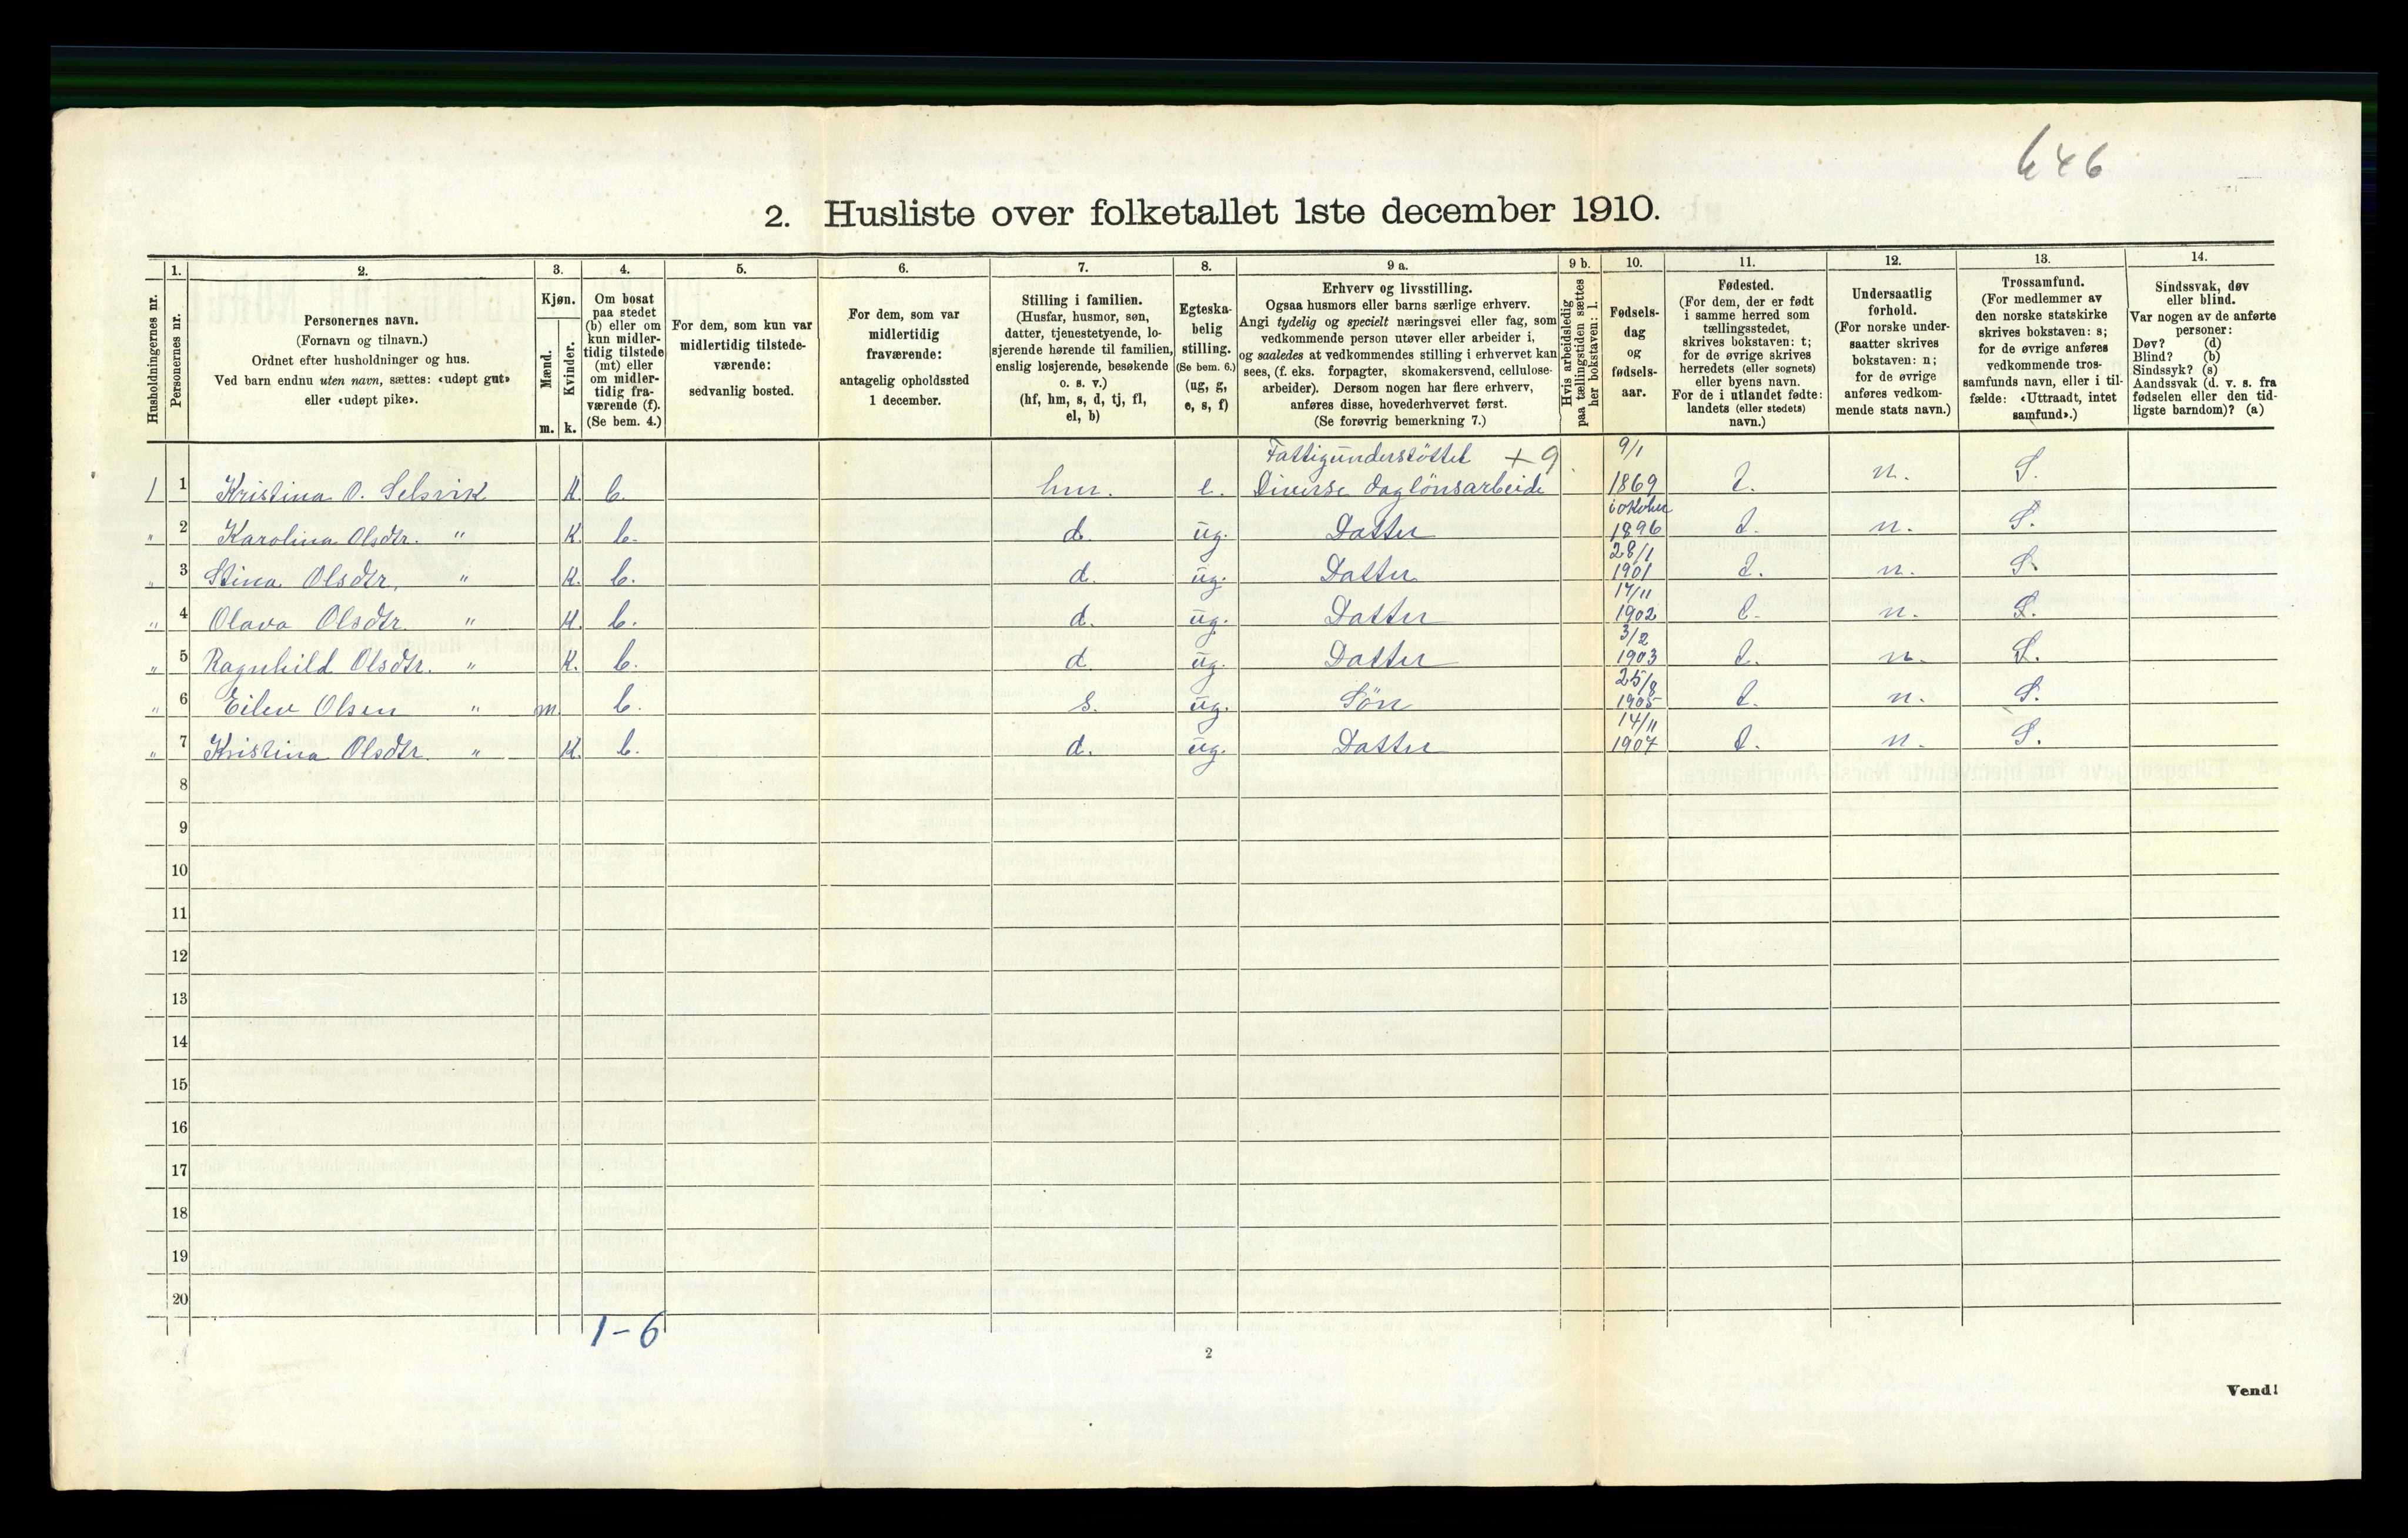 646
2. Husliste over folketallet 1ste december 1910.
Husholdningernes nr.
1.
Personernes nr.
2.
Personernes navn.
(Fornavn og tilnavn.)
Ordnet efter husholdninger og hus.
Ved barn endnu uten navn, sættes: «udøpt gut»
eller «udøpt pike».
3.
Kjøn.
Mænd.
Kvinder.
m. k.
4.
Om bosat
paa stedet
(b) eller om
kun midler-
tidig tilstede
(mt) eller
om midler-
tidig fra-
værende (f).
(Se bem. 4.)
5.
For dem, som kun var
midlertidig tilstede-
værende:
sedvanlig bosted.
6.
For dem, som var
midlertidig
fraværende:
antagelig opholdssted
1 december.
7.
Stilling i familien.
(Husfar, husmor, søn,
datter, tjenestetyende, lo-
sjerende hørende til familien,
enslig losjerende, besøkende
o. s. v.)
(hf, hm, s, d, tj, fl,
el, b)
8.
Egteska-
belig
stilling.
(Se bem. 6.)
(ug, g,
e, s, f)
9 a.
Erhverv og livsstilling.
Ogsaa husmors eller barns særlige erhverv.
Angi tydelig og specielt næringsvei eller fag, som
vedkommende person utøver eller arbeider i,
og saaledes at vedkommendes stilling i erhvervet kan
sees, (f. eks. forpagter, skomakersvend, cellulose-
arbeider). Dersom nogen har flere erhverv,
anføres disse, hovederhvervet først.
(Se forøvrig bemerkning 7.)
9 b.
Hvis arbeidsledig
paa tællingstiden sættes
her bokstaven: l.
10.
Fødsels-
dag
og
fødsels-
aar.
11.
Fødested.
(For dem, der er født
i samme herred som
tællingsstedet,
skrives bokstaven: t;
for de øvrige skrives
herredets (eller sognets)
eller byens navn.
For de i utlandet fødte:
landets (eller stedets)
navn.)
12.
Undersaatlig
forhold.
(For norske under-
saatter skrives
bokstaven: n;
for de øvrige
anføres vedkom-
mende stats navn.)
13.
Trossamfund.
(For medlemmer av
den norske statskirke
skrives bokstaven: s;
for de øvrige anføres
vedkommende tros-
samfunds navn, eller i til-
fælde: «Uttraadt, intet
samfund».)
14.
Sindssvak, døv
eller blind.
Var nogen av de anførte
personer:
Døv? (d)
Blind? (b)
Sindssyk? (s)
Aandssvak (d. v. s. fra
fødselen eller den tid-
ligste barndom)? (a)
Fattigunderstöttet + 9 9/1
1 1 Kristina O. Selsvik K b. hm. e. Diverse daglönsarbeide 1869 t. n. S.
i oktober
" 2 Karolina Olsdtr. " K. b. d. ug. Datter 1896 t. n. S.
28/1
" 3 Stina Olsdtr. " K. b. d. ug. Datter 1901 t. n. S.
17/11
" 4 Olava Olsdtr. " K. b. d. ug. Datter 1902 t. n. S.
3/2
" 5 Ragnhild Olsdtr. " K. b. d. ug. Datter 1903 t. n. S.
25/8
" 6 Eilev Olsen " m. b. s. ug. Sön 1905 t. n. S.
14/11
" 7 Kristina Olsdtr. " K. b. d. ug. Datter 1907 t. n. S.
8
9
10
11
12
13
14
15
16
17
18
19
20
1-6
2
Vend!